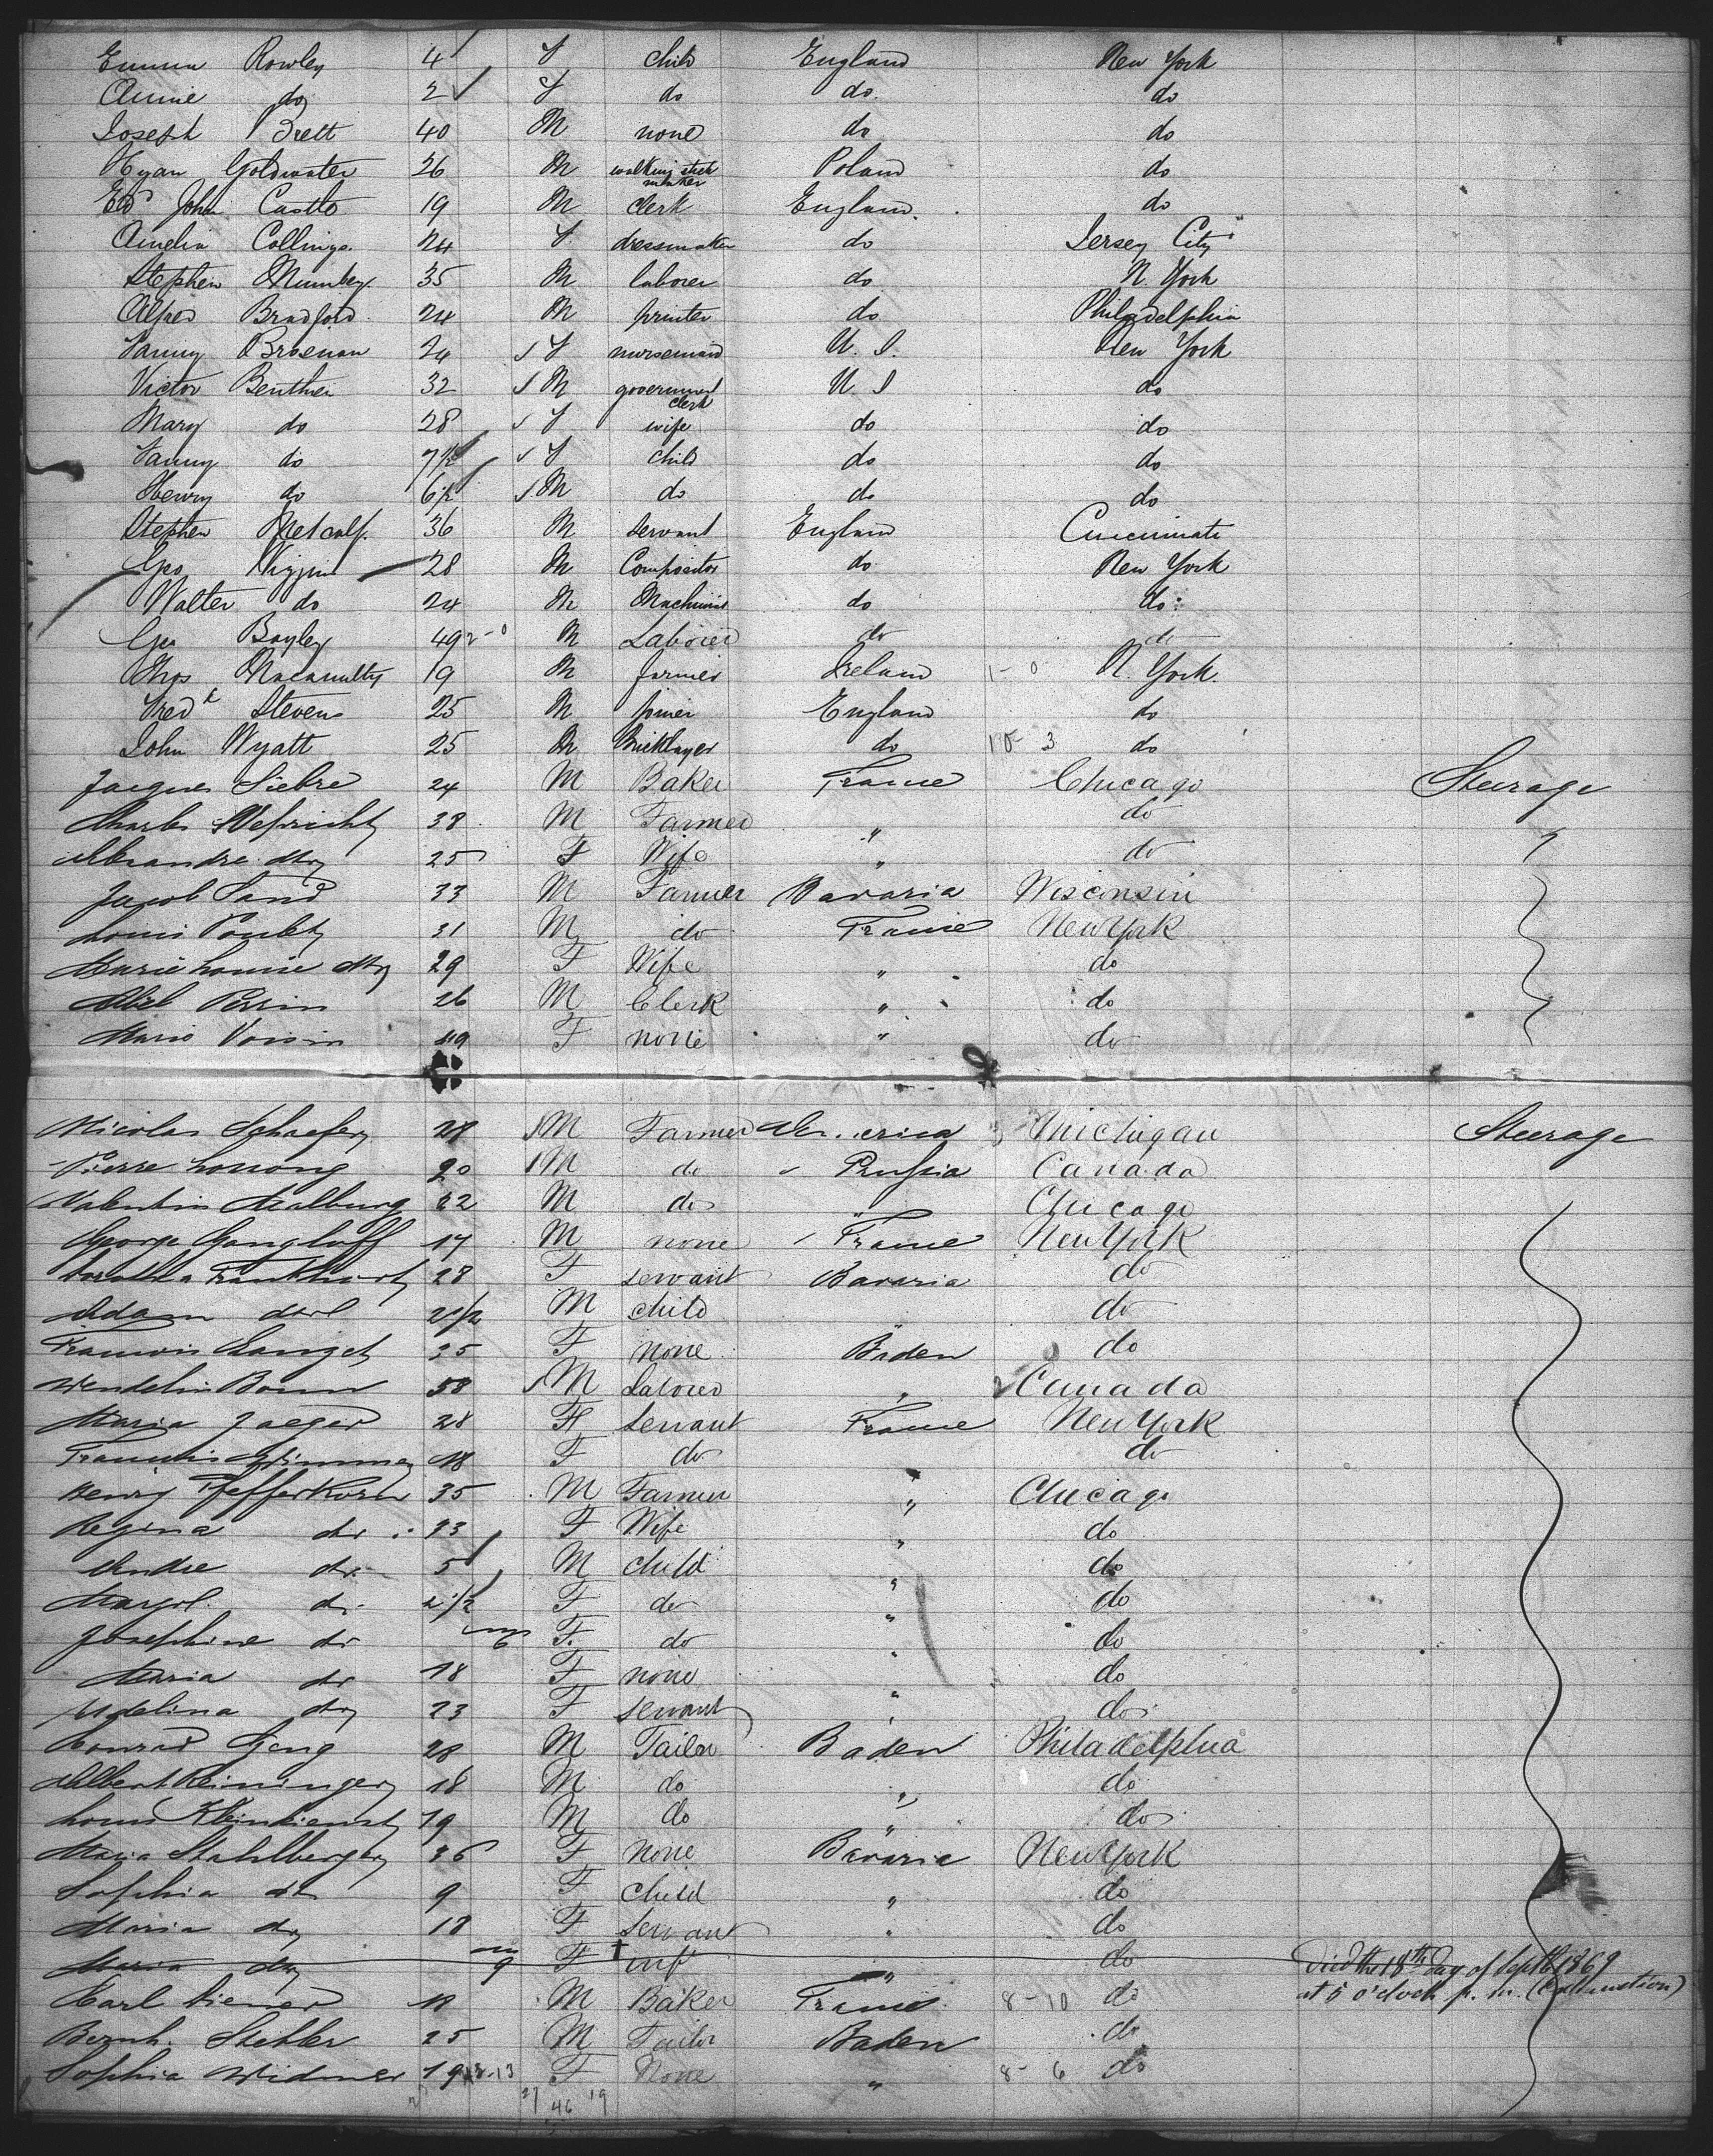 Emma Rowley 4 F child England New York
Annie do 2 F do do do
Joseph Brett 40 M none do do
Hyan Goldwater 26 M walking stick maker Poland do
Ed John Castle 19 M clerk England do
Amelia Collings 24 F dressmaker do Jersey City
Stephen Mumbey 35 M laborer do N. York
Alfred Bradford 24 M printer do Philadelphia
Fanny Brosnan 24 F nursemaid U. S. New York
Victor Benther 32 M government clerk U S do
Mary do 28 F wife do do
Fanny do 7 1/2 F child do do
Henry do 6 1/2 M do do do
Stephen Metcalf. 36 M servant England Cincinnati
Geo Wiggin 28 M Compositor do New York
Walter do 24 M Machinist do do
Geo Bayley 49 M Laborer do do
Thos Macanulty 19 M farmer Ireland 1-0 N. York.
Fredk Stevens 25 M joiner England do
John Wyatt 25 M Bricklayer do 10-3 do
Jacques Siebre 24 M Baker France Chicago Steerage
Charles 38 M Farmer " do "
25 F Wife " do
Jacob Sand 33 M Farmer Bavaria Wisconsin
Louis 31 M do France New York
Marie Louise 29 F Wife " do
Abel Perrin 26 M Clerk " do
Marie Voisin 49 F none " do
Nicolas Schaefer 28 M Farmer America Michigan Steerage
Pierre 20 M do Prussia Canada
Valentin Malburg 22 M do " Chicago
George Gangloff 17 M none France New York
28 F servant Bavaria do
Adam 2 1/2 M child " do
35 F none Baden do
Wendelin Bonn 58 M Laborer " Canada
Maria Jaeger 28 F servant France New York
18 F do " do
Henry Pfefferkorn 35 M Farmer " Chicago
Regina do 23 F Wife " do
Andre do 5 M child " do
Margt. do 2 1/2 F do " do
Josephine do 6 F. do " do
Maria do 18 F none " do
Adelina do 23 F servant " do
Conrad Geng 28 M Tailor Baden Philadelphia
Albert Reininger 18 M do " do
Louis Kleindienst 19 M do " do
Maria Stahlberger 36 F none Bavaria New York
Sophia do 9 F child " do
Maria do 18 F servant " do
Maria do 9 F inf " do Died the 18th day of Septb 1869
at 5 o'clock p. m. (Exhaustion)
Karl 18 M Baker France 8-10 do
Bernh. Stehler 25 M Tailor Baden do
Sophia Widmer 19 F None " 8-6 do
27 46 19